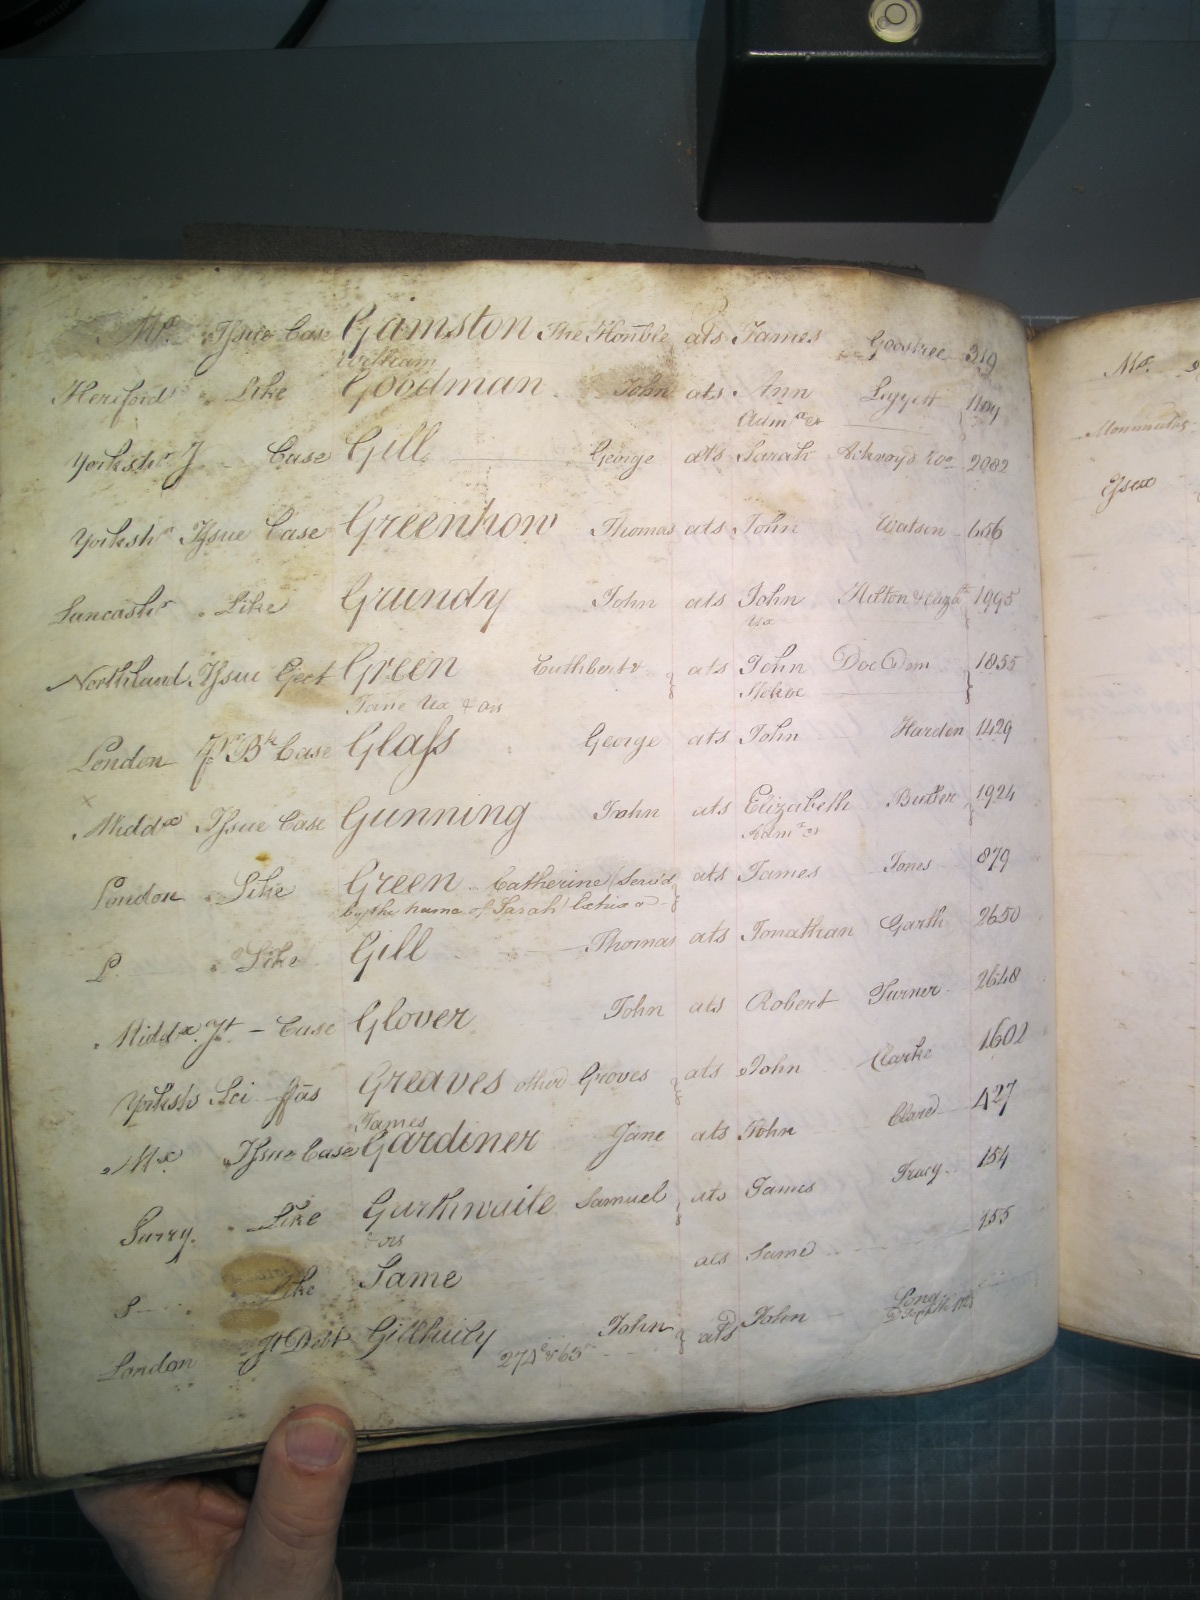 Mx. Issue Case Gamston The Honble ats James Goostree 319
William
Herefords Like Goodman John ats Ann Liggett 1109
Adm:x &c
Yorkshr J Case Gill George ats Sarah Ackroyd 2082
Yorkshr Issue Case Greenhow Thomas ats John Watson 656
Lancashr Like Grundy John ats John Hilton & Elizth 1995
Ux
Northland Issue Eject Green Cuthbert & ats John Doe Dem 1855
Jane Ux & ors
London Case Glaſs George ats John Harden 1429
Middx Issue Case Gunning John ats Elizabeth Butler 1924
Adm:x &c
London Like Green Catherine (Sery'd ats James Jones 879
by the name of Sarah
L Like Gill Thomas ats Jonathan Garth 2650
Middx Jt Case Glover John ats Robert Turner 2648
Yorksh Sci fas Greaves other Groves ats John Clarke 1602
James
Mx Issue Case Gardiner Jane ats John 427
Surry. Like Garthwaite Samuel ats James Tracy 154
& ors
S Like Same ats Same 155
London Jt Debt John ats John Long